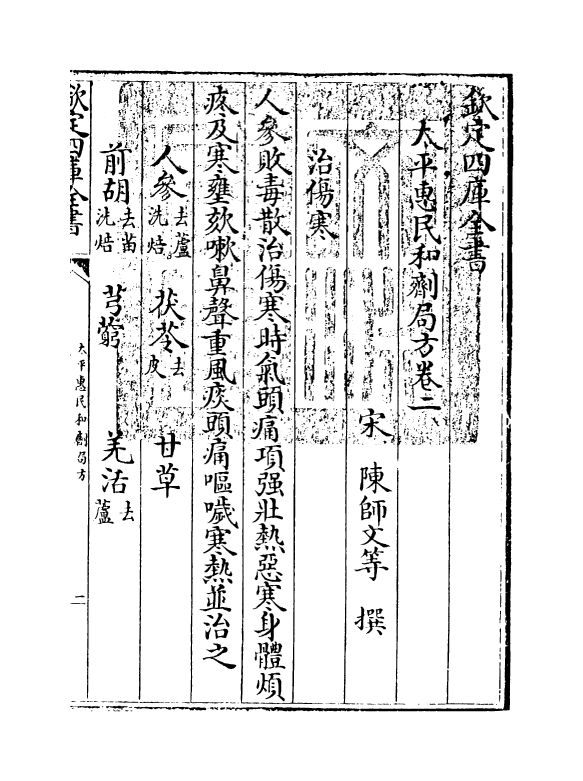 欽定四庫全書
太平惠民和劑局方卷二
宋 陳師文等 撰
治傷寒
人參敗毒散治傷寒時氣頭痛項强壯熱惡寒身體煩
疼及寒壅欬嗽鼻聲重風痰頭痛嘔噦寒熱並治之
人參去蘆洗焙 茯苓去皮 甘草
前胡去苗洗焙 芎藭 羌活去蘆
欽定四庫全書
太平惠民和劑局方
二